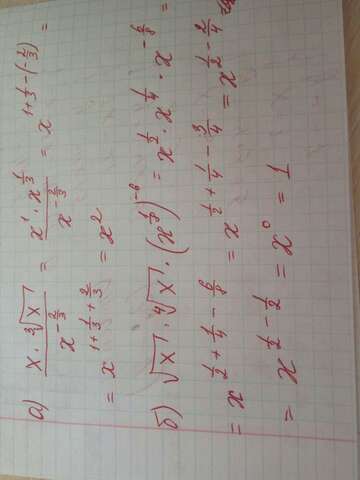 а) (x · ∛x)/(x^(-2/3)) = (x¹ · x^(1/3))/(x^(-2/3)) = x^(1+1/3-(-2/3)) =
= x^(1+1/3+2/3) = x²
б) √x · ∜x · (x^(1/8))^(-6) = x^(1/2) · x^(1/4) · x^(-6/8) =
= x^(1/2+1/4-6/8) = x^(1/2+1/4-3/4) = x^(1/2-2/4) =
= x^(1/2-1/2) = x⁰ = 1